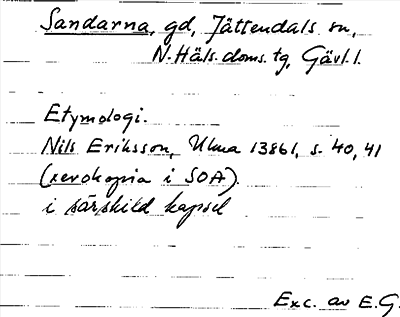 Sandarna, gd, Jättendals sn,
N. Häls. doms. tg, Gävl. l.
Etymologi.
Nils Eriksson, Uluma 13861, s. 40, 41
(xerokopia i SOA).
i särskild kapsel
Exc. av E.G.